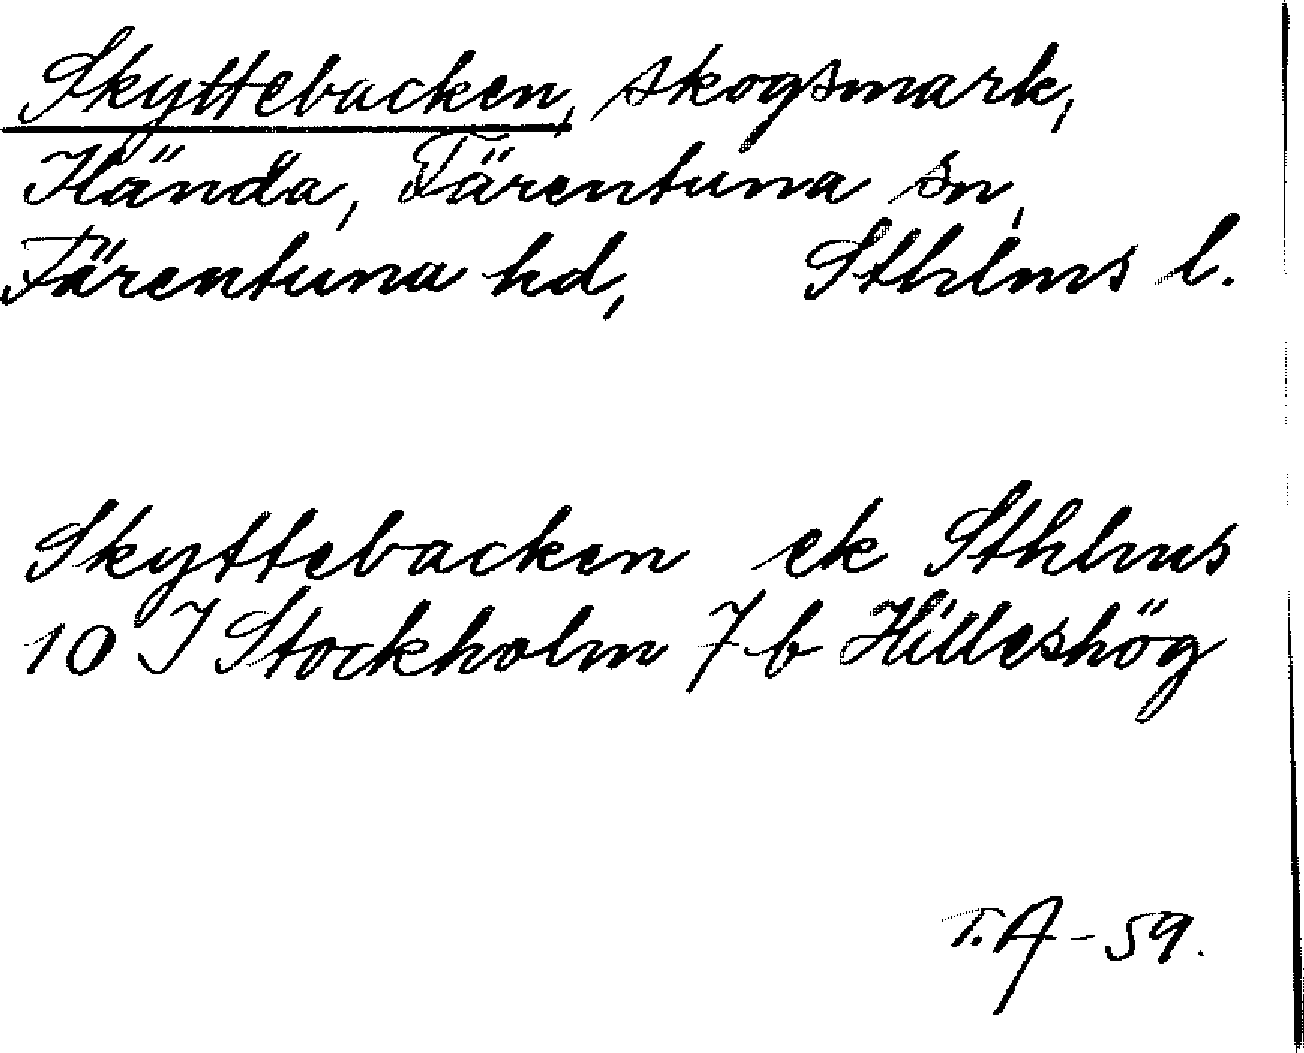 Skyttebacken, skogsmark,
Hända, Färentuna sn,
Färentuna hd, Sthlms l.
Skyttebacken ek Sthlms
10 I Stockholm 7 b Hilleshög
T.A - 59.